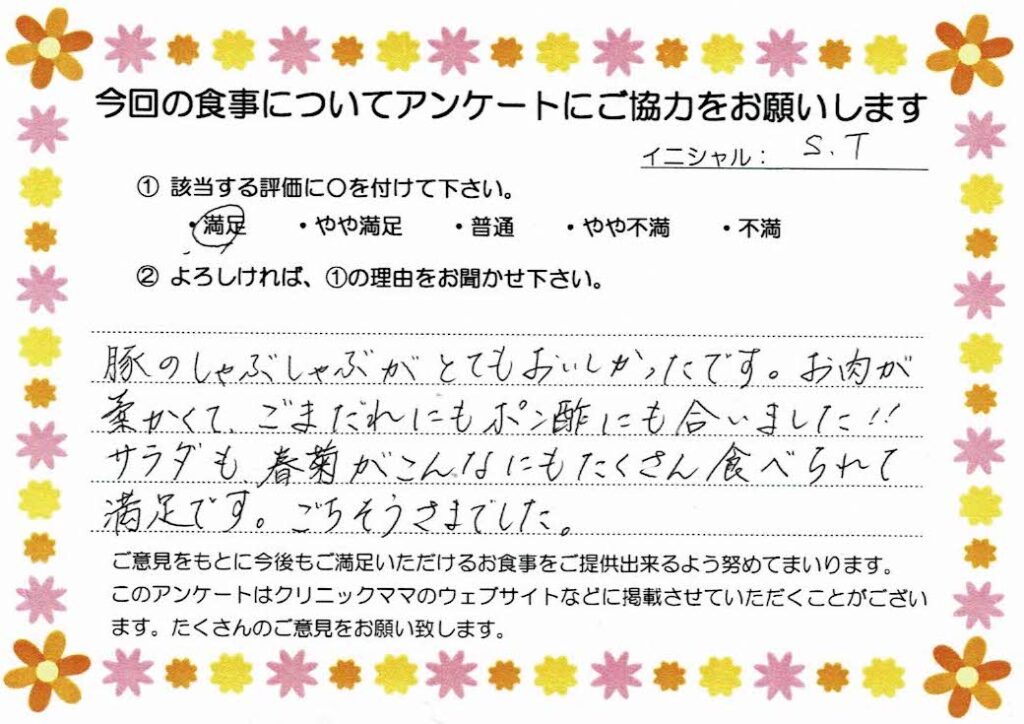 今回の食事についてアンケートにご協力をお願いします
イニシャル： S.T
① 該当する評価に○を付けて下さい。
・満足 ・やや満足 ・普通 ・やや不満 ・不満
② よろしければ、①の理由をお聞かせ下さい。
豚のしゃぶしゃぶがとてもおいしかったです。お肉が
柔かくて、ごまだれにもポン酢にも合いました!!
サラダも、春菊がこんなにもたくさん食べられて
満足です。ごちそうさまでした。
ご意見をもとに今後もご満足いただけるお食事をご提供出来るよう努めてまいります。
このアンケートはクリニックママのウェブサイトなどに掲載させていただくことがござい
ます。たくさんのご意見をお願い致します。